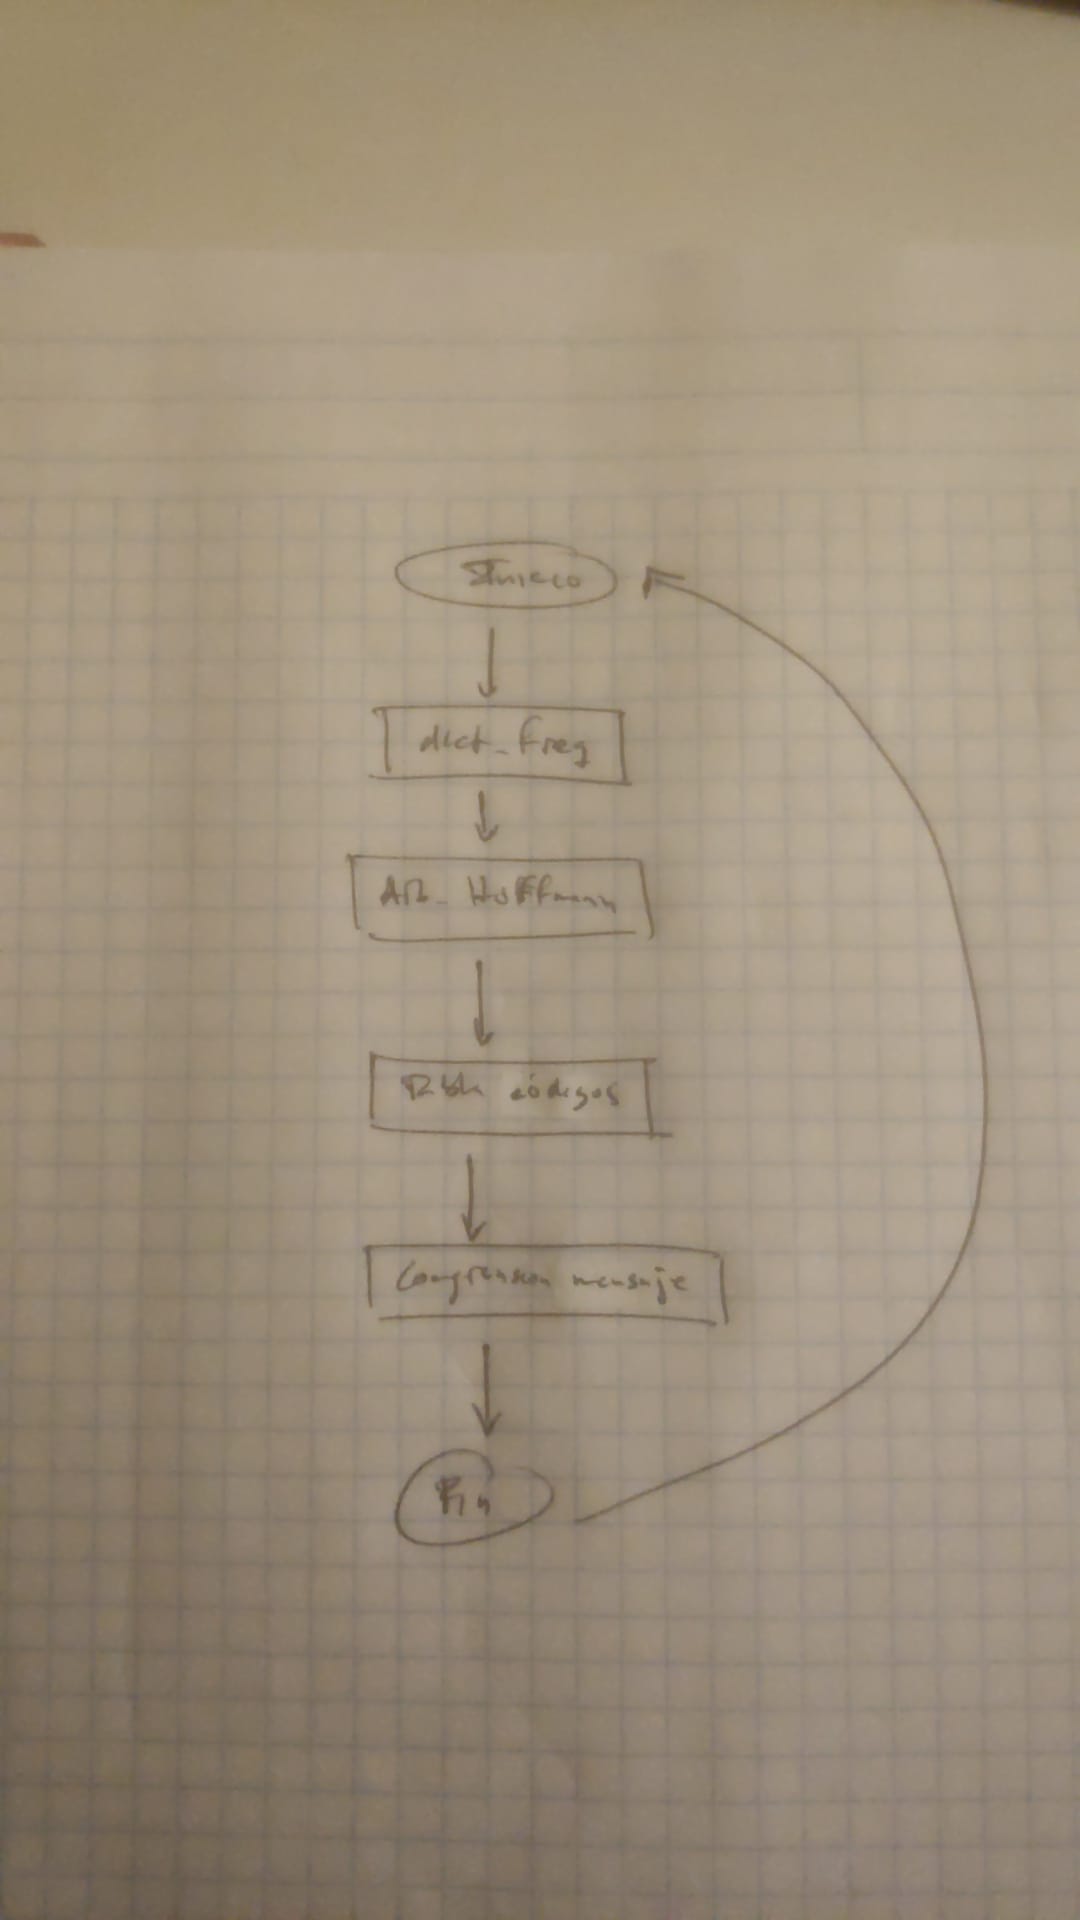 Inicio
dict_freq
Arb_Huffmann
Tabla códigos
Compresion mensaje
Fin